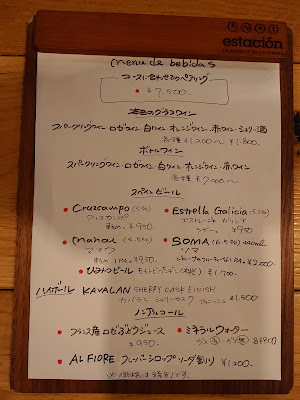 estación
menu de bebidas
コースに合わせるペアリング
• ¥7,500.
本日のグラスワイン
スパークリングワイン・ロゼワイン・白ワイン・オレンジワイン・赤ワイン・シェリー酒
各種 ¥1,200〜 ¥1,800.
ボトルワイン
スパークリングワイン・ロゼワイン・白ワイン・オレンジワイン・赤ワイン
各種 ¥7,000〜
スペインビール
• Cruzcampo (5%)
クルスカンポ
¥950
• Estrella Galicia (5.5%)
エストレージャ ガリシア
ラガー ¥950
• mahou (4.5%)
マオウ
IPA ¥950.
• SOMA (6.5%) 440ml
ソマ
IPA ¥2,000
• びわ ビール ¥1,700
ハイボール KAVALAN SHERRY CASK FINISH
カバラン シェリーカスク フィニッシュ ¥1,500
ノンアルコール
• フランス産ロゼぶどうジュース
¥950
• ミネラルウォーター
各¥800
• AL FIORE フレーバーシロップソーダ割り ¥1,200.
※価格は税書です。